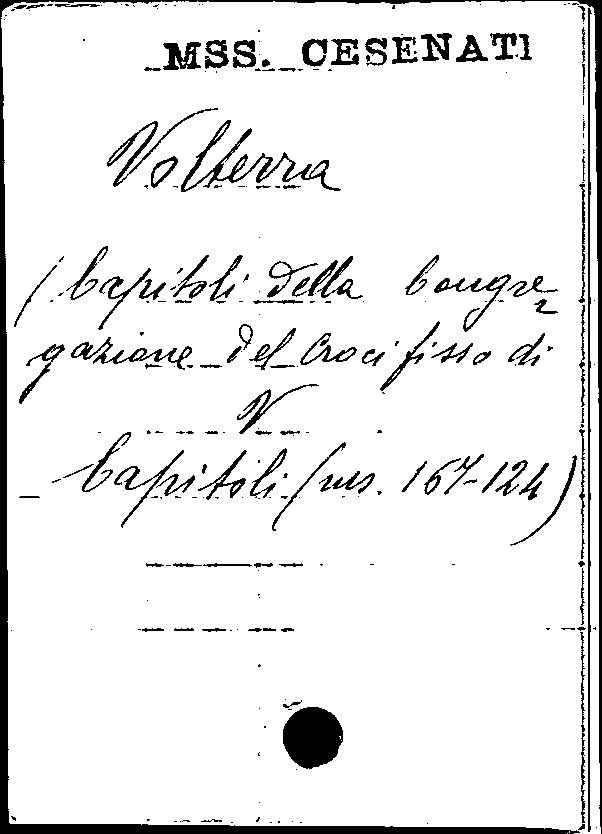 MSS. CESENATI
Volterra
/ Capitoli della Congre=
gazione del Crocifisso di
V
Capitoli (ms. 167-124)